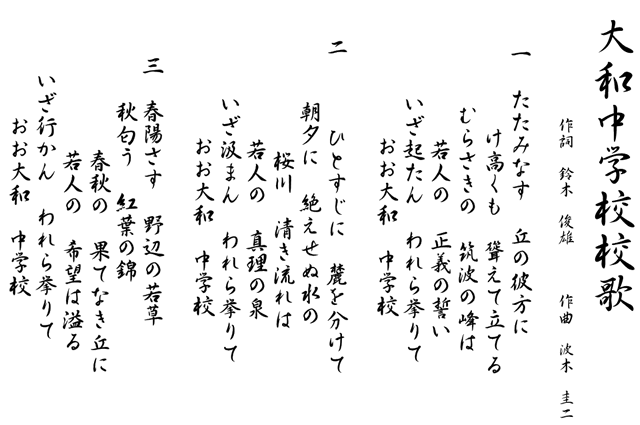 大和中学校校歌
作詞 鈴木 俊雄 作曲 波木 圭二
一
たたみなす 丘の彼方に
け高くも 聳えて立てる
むらさきの 筑波の峰は
若人の 正義の誓い
いざ起たん われら挙りて
おお大和 中学校
二
ひとすじに 麓を分けて
朝夕に 絶えせぬ水の
桜川 清き流れは
若人の 真理の泉
いざ汲まん われら挙りて
おお大和 中学校
三
春陽さす 野辺の若草
秋匂う 紅葉の錦
春秋の 果てなき丘に
若人の 希望は溢る
いざ行かん われら挙りて
おお大和 中学校